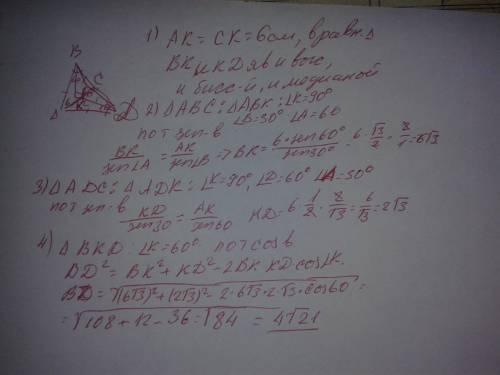 1) AK = CK = 6см, в равн. Δ
BK и KD яв и выс,
и бисс-й, и медианой
B
C
A
K
D
2) ΔABC: ΔABK: ∠K=90°
∠B=30° ∠A=60
по т sin-в
BK/sin∠A = AK/sin∠B => BK = 6·sin60°/sin30° = 6·√3/2 · 2/1 = 6√3
3) ΔADC: ΔADK: ∠K=90°, ∠D=60° ∠A=30°
по т sin-в KD/sin30 = AK/sin60 KD = 6·1/2·2/√3 = 6/√3 = 2√3
4) ΔBKD: ∠K=60° по т cos в
BD² = BK² + KD² - 2BK·KD cos∠K.
BD = √(6√3)² + (2√3)² - 2·6√3·2·√3·cos60° =
= √108 + 12 - 36 = √84 = 4√21